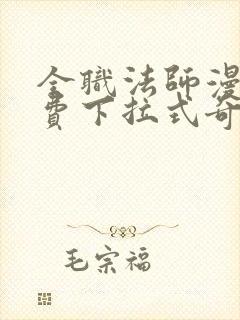 全職法師漫
費下拉式奇
毛宗福